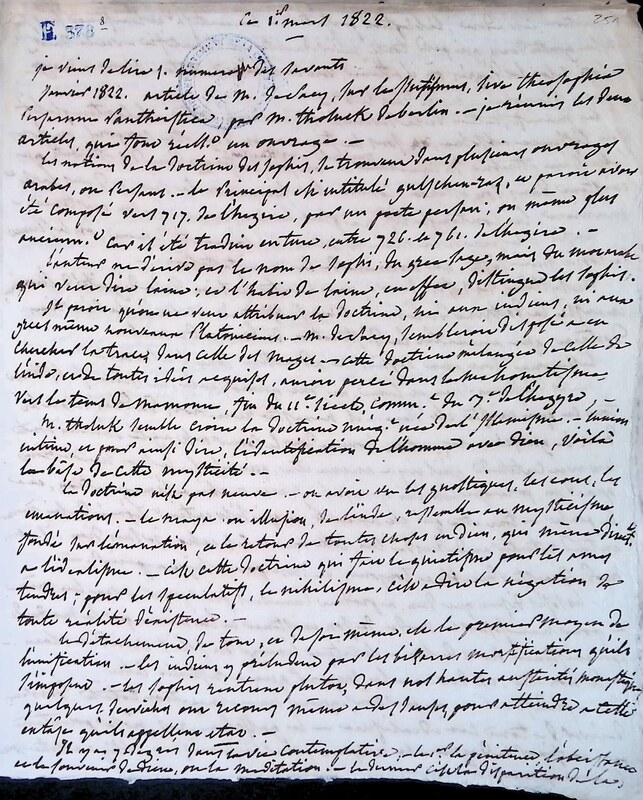 E 378 8
ce 1er mars 1822.
251
je viens de lire 1. numero des savants
janvier 1822. article de M. de Sacy, sur le sufismus, sive theosophia
Persarum Pantheistica, par M. tholuck de berlin. – je réunis les deux
articles, qui font réellt. un ouvrage. –
les notions de la doctrine des sophis, se trouvent dans plusieurs ouvrages
arabes, ou Persans. – le Principal est intitulé gulschen-raz, ce paroit avoir
été composé vers 717. de l'hegire, par un poete persan; ou même plus
ancienmt. car il a été traduit en turc, entre 726. et 761. de l'hegire. –
l'auteur ne dérive pas le nom de sophi, du grec sage, mais du mot arabe
qui veut dire laine; et l'habit de laine, en effet, distingue les sophis.
Il paroit qu'on ne veut attribuer la doctrine, ni aux indiens, ni aux
grecs même nouveaux Platoniciens. – M. de Sacy, sembleroit disposé à en
chercher la trace, dans celle des mages. – cette doctrine mélangée de celle de
l'inde, et de toutes idées acquises, auroit percé dans le mahometisme
vers le tems de Mamoun, fin du 2e. siecle, commt. du 3e. de l'hegyre, –
M. tholuk semble croire la doctrine née de l'Islamisme. – l'union
intime, et pour ainsi dire, l'identification de l'homme avec dieu, voilà
la base de cette mysticité. –
la doctrine n'est pas neuve. – on avoit vu les gnostiques, les eons, les
emanations. – le maya ou illusion, de l'inde, ressemble au mysticisme
fondé sur l'émanation, et le retour de toutes choses en dieu, qui mène directt.
a l'idealisme. – c'est cette doctrine qui fait le quiétisme pour les ames
tendres – pour les speculatifs, le nihilisme, c'est a dire la négation de
toute réalité d'existence. –
le détachement de tout, et de soi même, est le premier moyen de
l'unification. – les indiens y préludent par les bizarres mortifications qu'ils
s'imposent. – les sophis rentrent plutot, dans nos hautes austérités monastiques
quelques derviches ont recours même a des danses, pour atteindre a cette
extase qu'ils appellent etat. –
Il y a 3 degrés dans la vie contemplative. – la pénitence, l'obeissance
et le souvenir de dieu, ou la meditation. – le dernier c'est la disparition de la